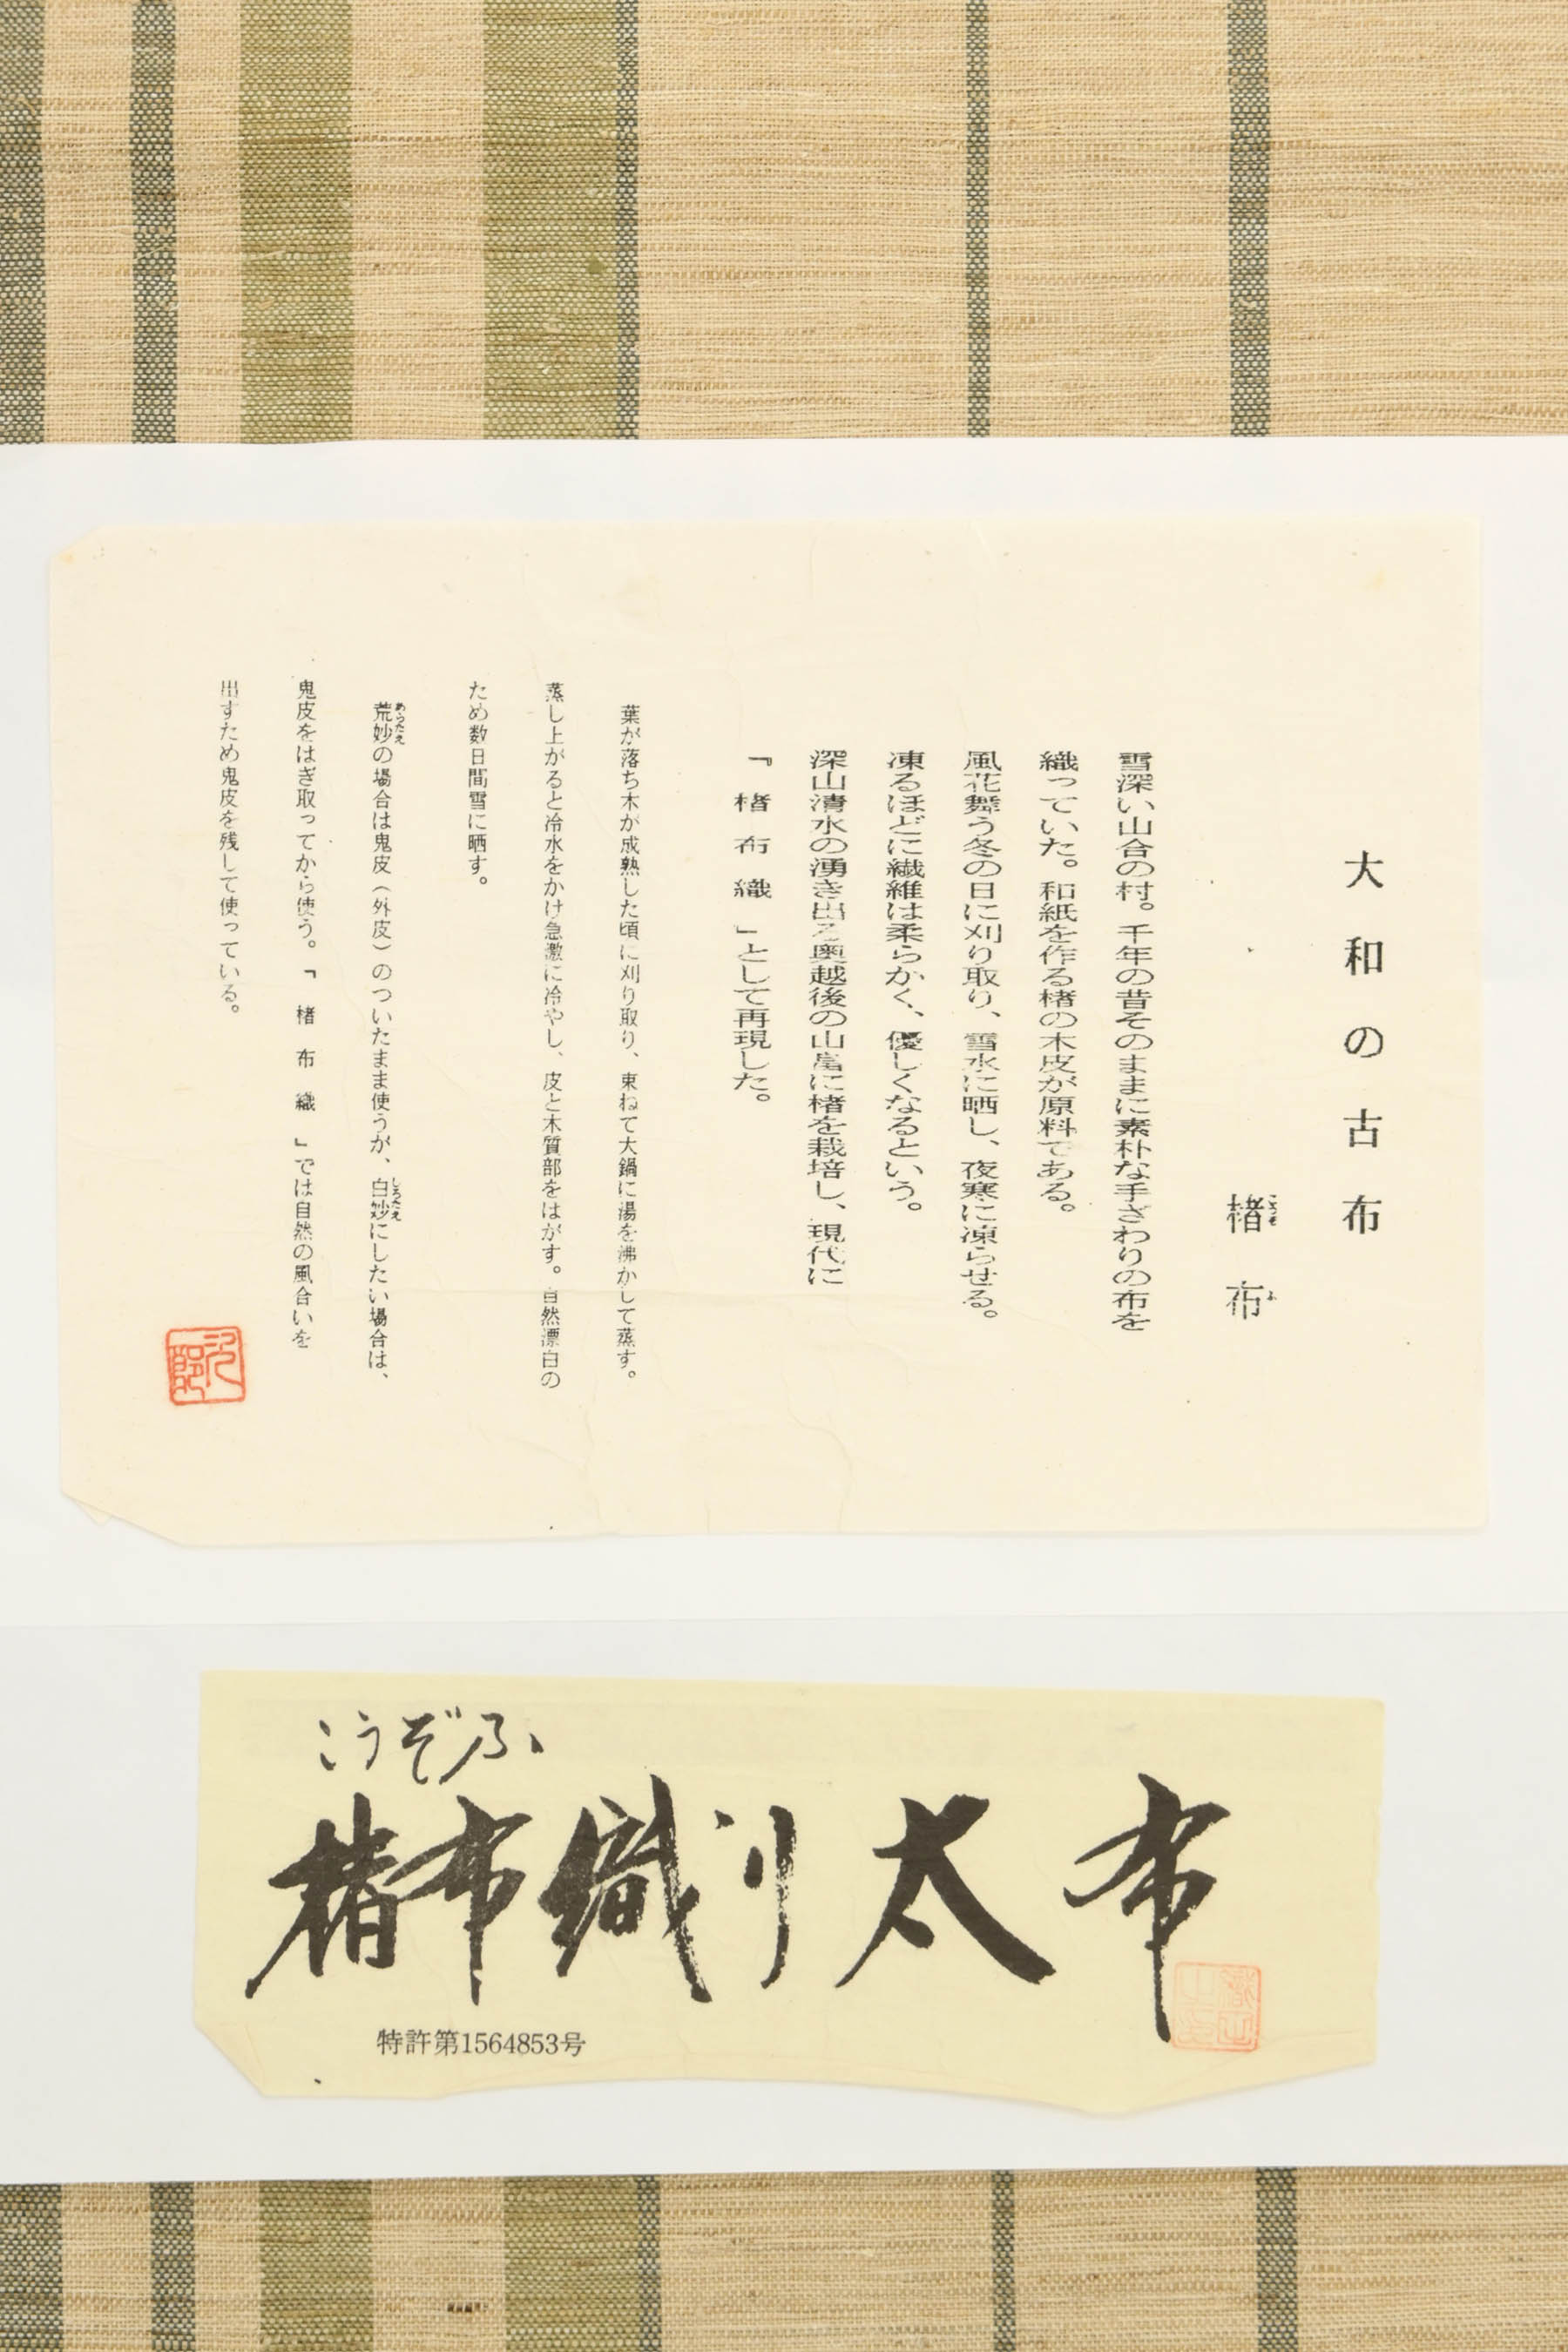 大和の古布
楮布
雪深い山合の村。千年の昔そのままに素朴な手ざわりの布を
織っていた。和紙を作る楮の木皮が原料である。
風花舞う冬の日に刈り取り、雪水に晒し、夜寒に凍らせる。
凍るほどに繊維は柔らかく、優しくなるという。
深山清水の湧き出る奥越後の山畠に楮を栽培し、現代に
「楮布織」として再現した。
葉が落ち木が成熟した頃に刈り取り、束ねて大鍋に湯を沸かして蒸す。
蒸し上がると冷水をかけ急激に冷やし、皮と木質部をはがす。自然漂白の
ため数日間雪に晒す。
あらたえ
荒妙の場合は鬼皮（外皮）のついたまま使うが、白妙にしたい場合は、
しろたえ
鬼皮をはぎ取ってから使う。「楮布織」では自然の風合いを
出すため鬼皮を残して使っている。
こうぞふ
楮布織り太布
特許第1564853号